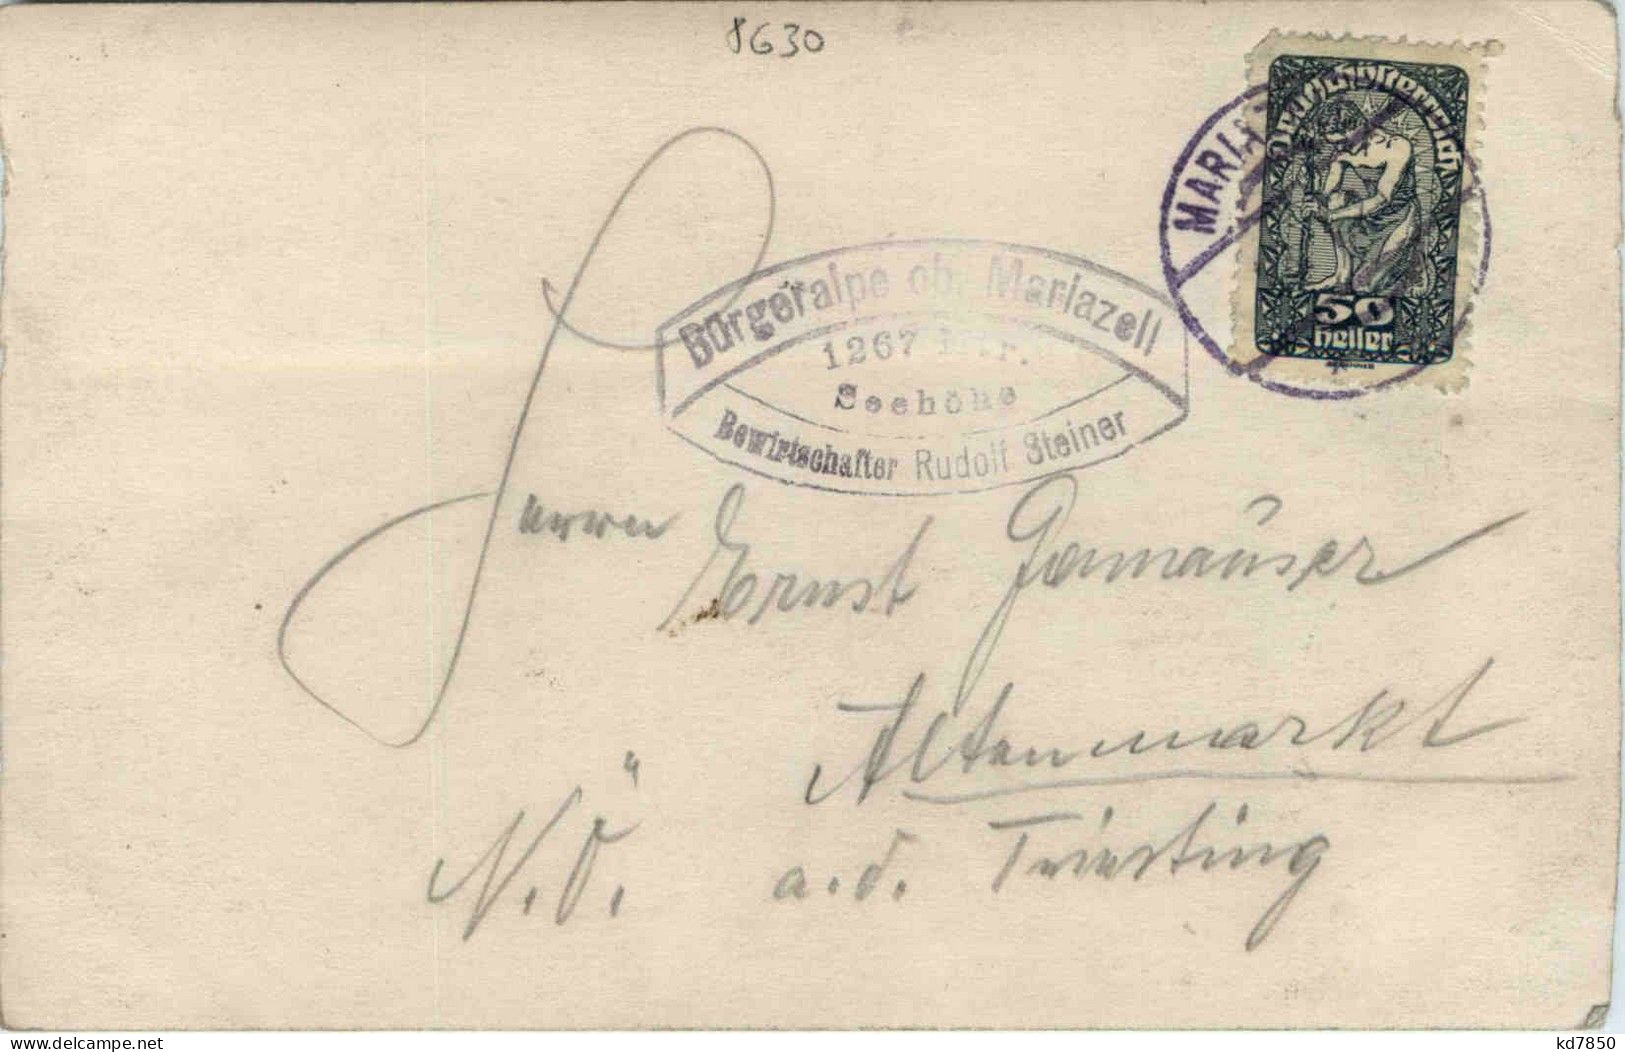 8630
Deutschösterreich
50
heller
MARIA
Bürgeralpe ob. Mariazell
1267 Mtr.
Seehöhe
Bewirtschafter Rudolf Steiner
Herrn Ernst
Altenmarkt
N.Ö. a.d. Triesting
delcampe.net
kd7850